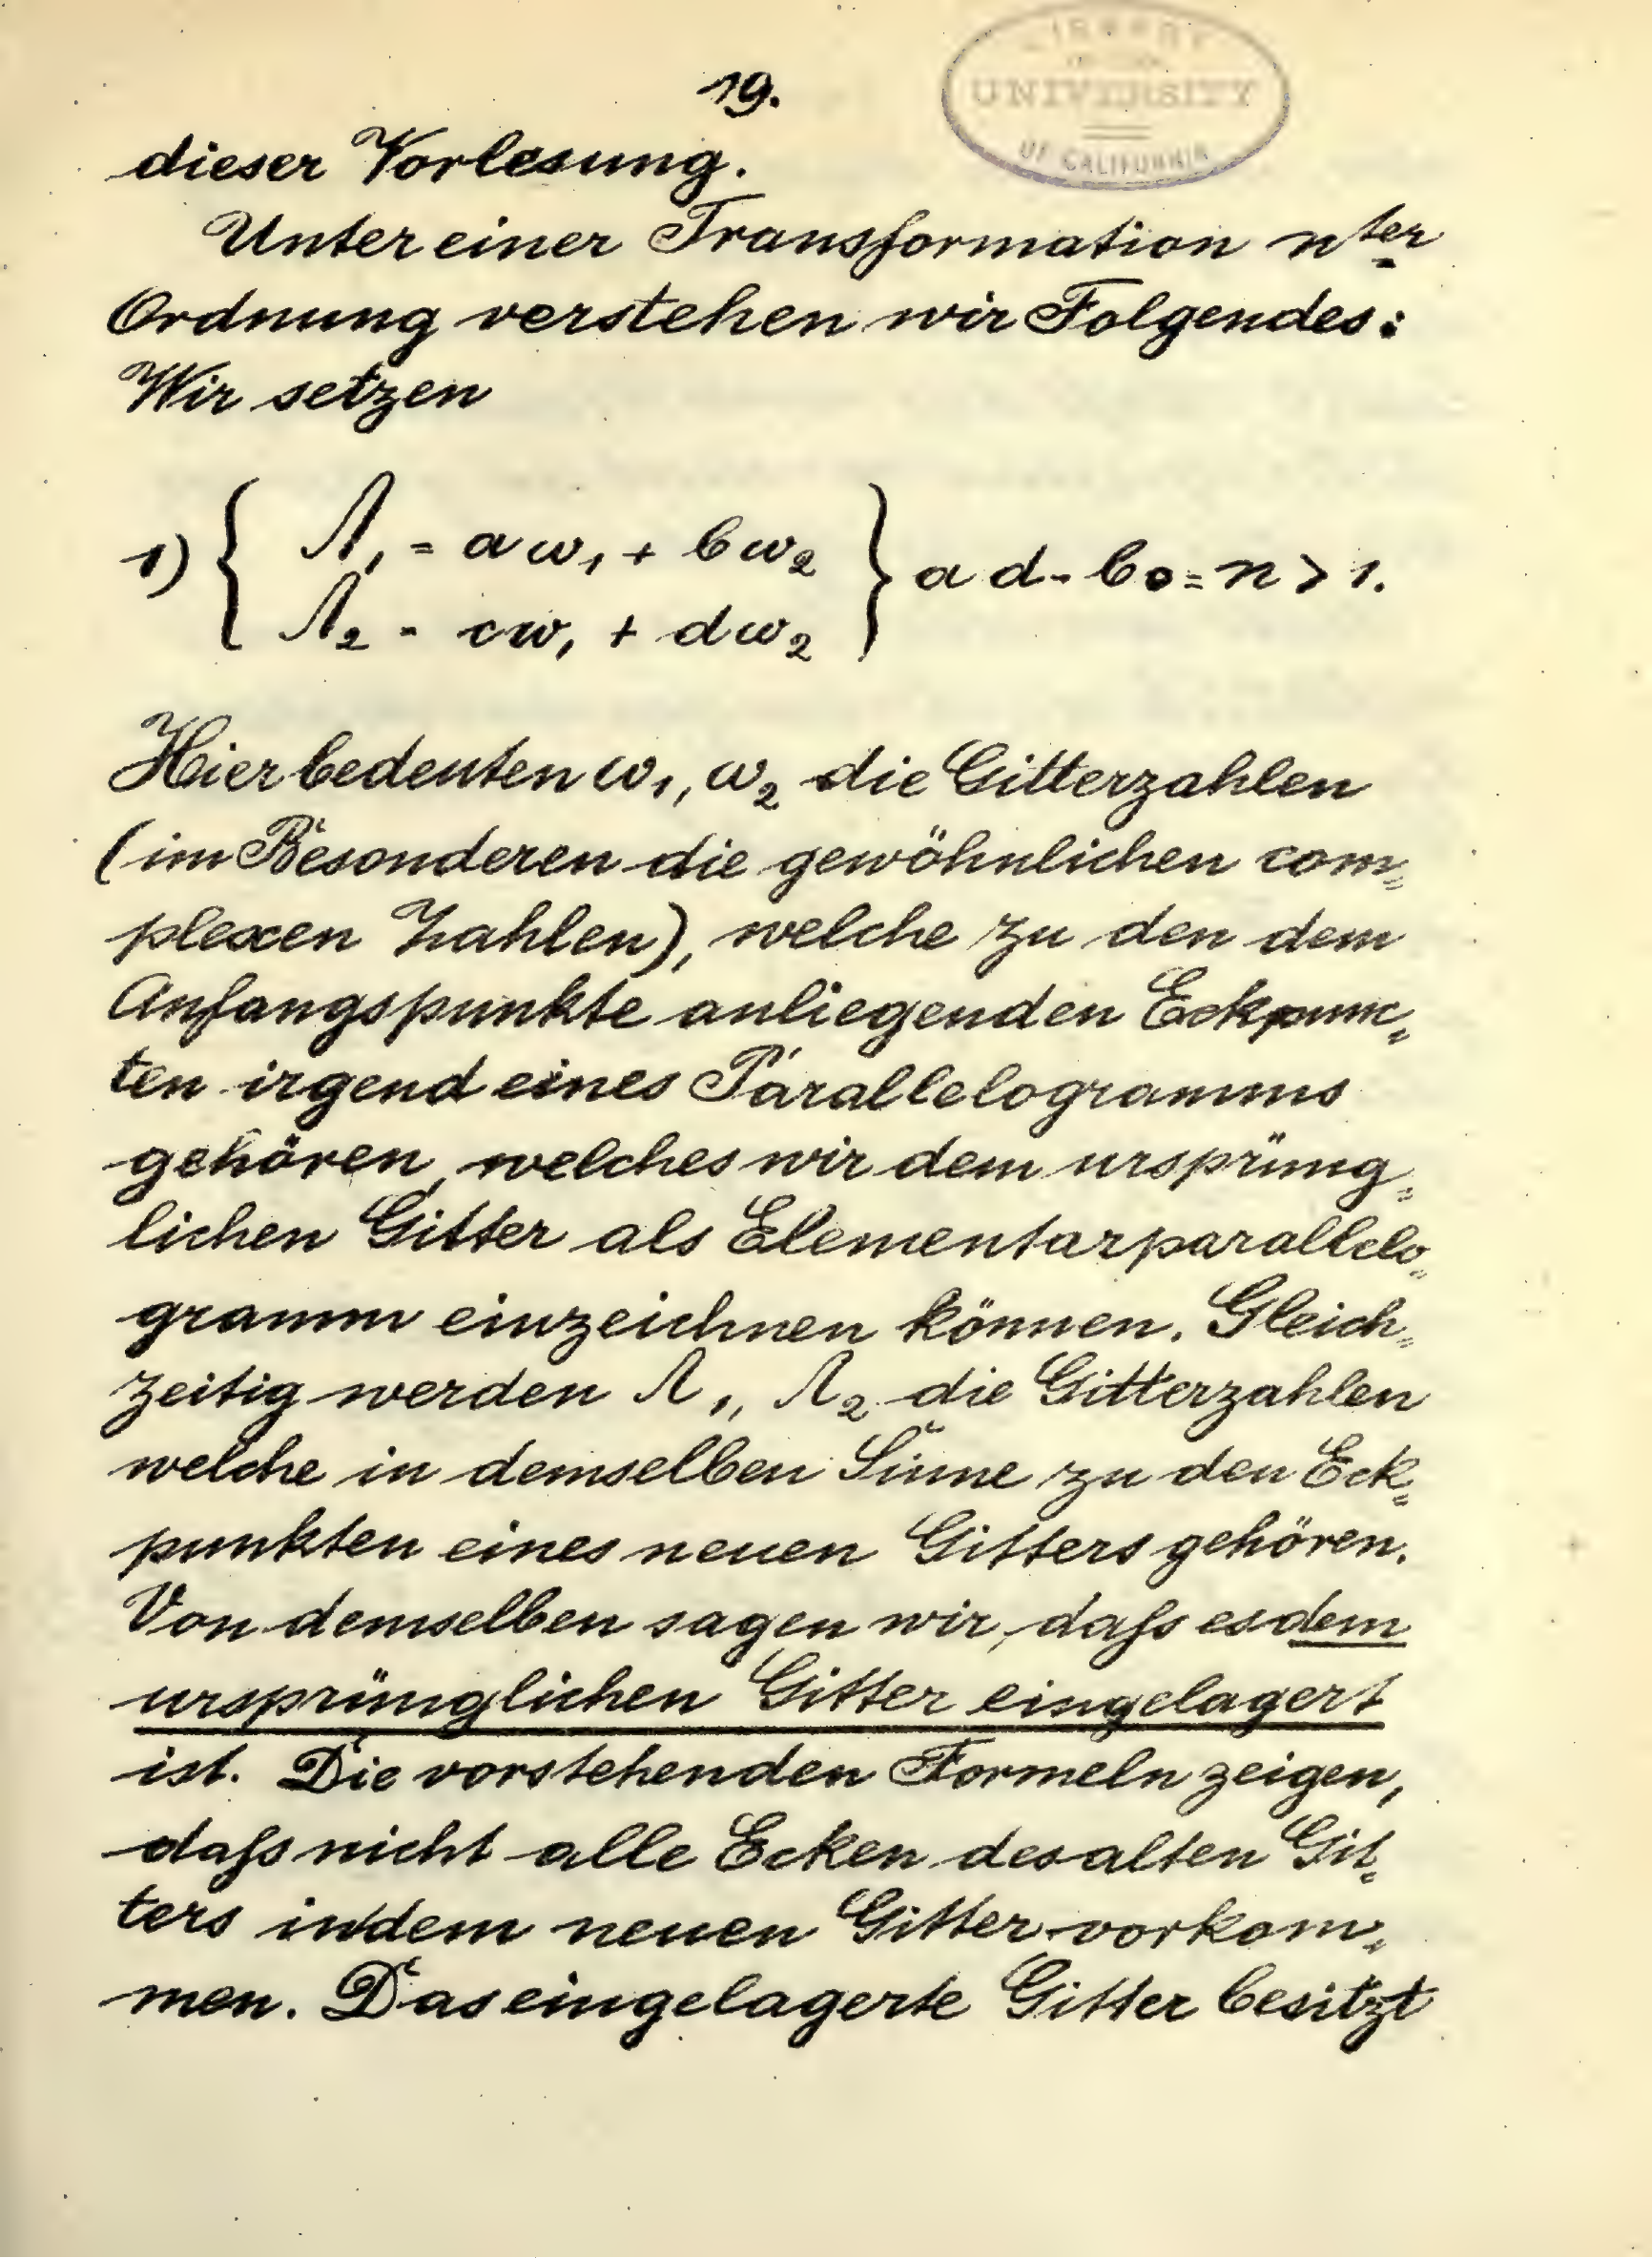 19.
LIBRARY
UNIVERSITY
OF CALIFORNIA
dieser Vorlesung.
Unter einer Transformation n^ter
Ordnung verstehen wir Folgendes:
Wir setzen
1) { Λ₁ = aω₁ + bω₂ } ad - bc = n > 1.
Λ₂ = cω₁ + dω₂
Hier bedeuten ω₁, ω₂ die Gitterzahlen
(im Besonderen die gewöhnlichen com„
plexen Zahlen), welche zu den dem
Anfangspunkte anliegenden Eckpunc„
ten irgend eines Parallelogramms
gehören, welches wir dem ursprüng„
lichen Gitter als Elementarparallelo„
gramm einzeichnen können. Gleich„
zeitig werden Λ₁, Λ₂ die Gitterzahlen
welche in demselben Sinne zu den Eck„
punkten eines neuen Gitters gehören.
Von demselben sagen wir, daſs es dem
ursprünglichen Gitter eingelagert
ist. Die vorstehenden Formeln zeigen,
daſs nicht alle Ecken des alten Git„
ters in dem neuen Gitter vorkom„
men. Das eingelagerte Gitter besitzt